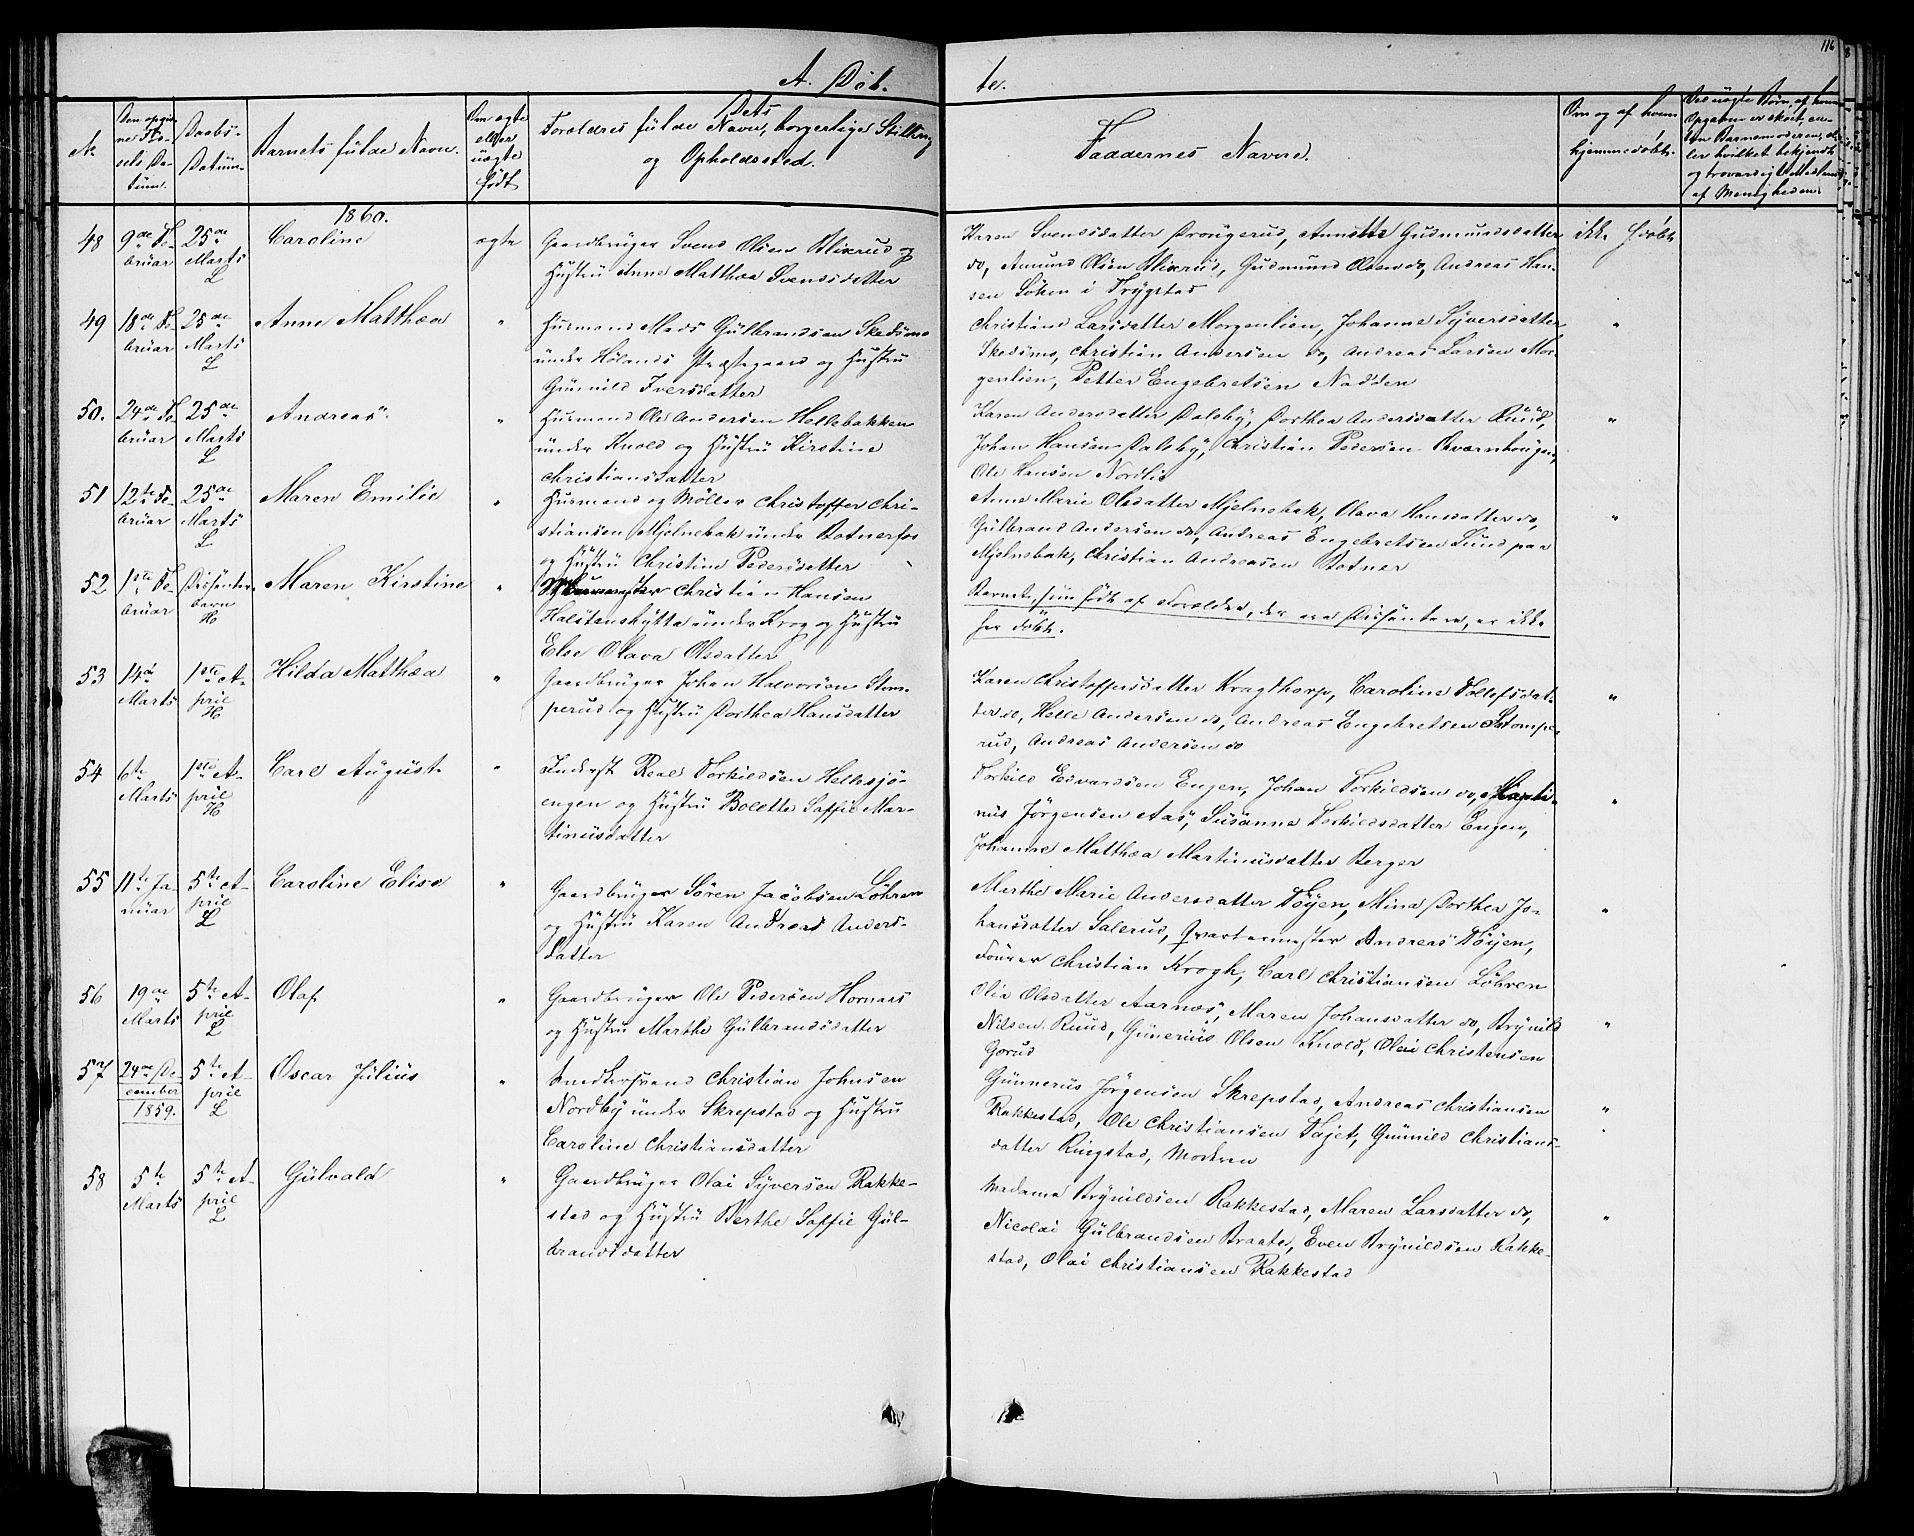 116
A. Döb-
te.
No
Den opgivne Fødsels Datum.
Daabs-Datum
Barnets fulde Navn.
Om ægte eller uægte født
Dets Forældres fulde Navn, borgerlige Stilling
og Opholdssted.
Faddernes Navne.
Om og af hvem
hjemmedöbt.
1860.
48 9de Februar 25de Marts L Caroline ægte
Gaardbruger Svend Olsen Blixrud og
Hustru Anne Matthea Svendsdatter
Karen Svendsdatter Drougerud, Annette Gudmundsdatter
do, Amund Olsen Blixrud, Gudmund Olsen do, Andreas Han-
sen Söken i Trygstad
ikke hjdöbt
49 18de Februar 25de Marts L Anne Matthæa "
Husmand Mads Gulbrandsen Skedsmo
under Hølands Præstegaard og Hustru
Gunnild Iversdatter
Christine Larsdatter Morgenlien, Johanne Syversdatter
Skedsmo, Christian Andersen do, Andreas Larsen Mor-
genlien, Petter Engebretsen Nadden
"
50. 24de Februar 25de Marts L Andreas "
Husmand Ole Andersen Hellebakken
under Knold og Hustru Kirstine
Christiansdatter
Karen Andersdatter Dalsby, Dorthea Andersdatter Ruud,
Johan Hansen Dalsby, Christian Pedersen Qværnhougen,
Ole Hansen Nordlie
"
51 12te Februar 25de Marts L Maren Emilie "
Husmand og Møller Christoffer Chri-
stiansen Mjelnebak under Botnerfos
og Hustru Christine Pedersdatter
Anne Marie Olsdatter Mjelnebak, Olava Hansdatter do,
Gulbrand Andersen do, Andreas Engebretsen Lund paa
Mjelnebak, Christian Andreasen Botner
"
52 1ste Februar Dissenterbarn H Maren Kirstine "
Christian Hansen
Halstenshytta under Krog og Hustru
Else Olava Olsdatter
Barnet, som født af Forældre, der ere Dissentere, er ikke
her döbt.
53 14de Marts 1ste April H Hilda Matthæa "
Gaardbruger Johan Halvorsen Stom-
perud og Hustru Dorthea Hansdatter
Karen Christoffersdatter Kragthorp, Caroline Tollefsdat-
ter do, Helle Andersen do, Andreas Engebretsen Stompe-
rud, Andreas Andersen do
"
54 6te Marts 1ste April H Carl August "
Inderst Reål Torkildsen Hellesjö-
engen og Hustru Bolette Soffie Mar-
tinusdatter
Torkild Edvardsen Engen, Johan Torkildsen do, Marti-
nus Jörgensen Aas, Susanne Torkildsdatter Engen,
Johanne Matthæa Martinusdatter Berger
"
55 11te Januar 5te April L Caroline Elise "
Gaardbruger Sören Jacobsen Löhren
og Hustru Karen Andrea Anders-
datter
Marthe Marie Andersdatter Töyen, Mina Dorthea Jo-
hansdatter Salerud, Qvartermester Andreas Töyen,
Fourer Christian Krogh, Carl Christiansen Löhren
"
56 19de Marts 5te April L Olaf "
Gaardbruger Ole Pedersen Hornaas
og Hustru Marthe Gulbrandsdatter
Olia Olsdatter Aarnæs, Maren Johansdatter do, Brynild
Nilsen Ruud, Gunerius Olsen Knold, Olai Christensen
Gorud
"
57 24de December 1859. 5te April L Oscar Julius "
Snedkersvend Christian Johnsen
Nordby under Skrepstad og Hustru
Caroline Christiansdatter
Gunnerus Jörgensen Skrepstad, Andreas Christiansen
Rakkestad, Ole Christiansen Tajet, Gunnild Christians-
datter Ringstad, Modren
"
58 5te Marts 5te April L Gulvald "
Gaardbruger Olai Syversen Rakke-
stad og Hustru Berthe Soffie Gul-
brandsdatter
Madame Brynildsen Rakkestad, Maren Larsdatter do,
Nicolai Gulbrandsen Braate, Even Brynildsen Rakke-
stad, Olai Christiansen Rakkestad
"